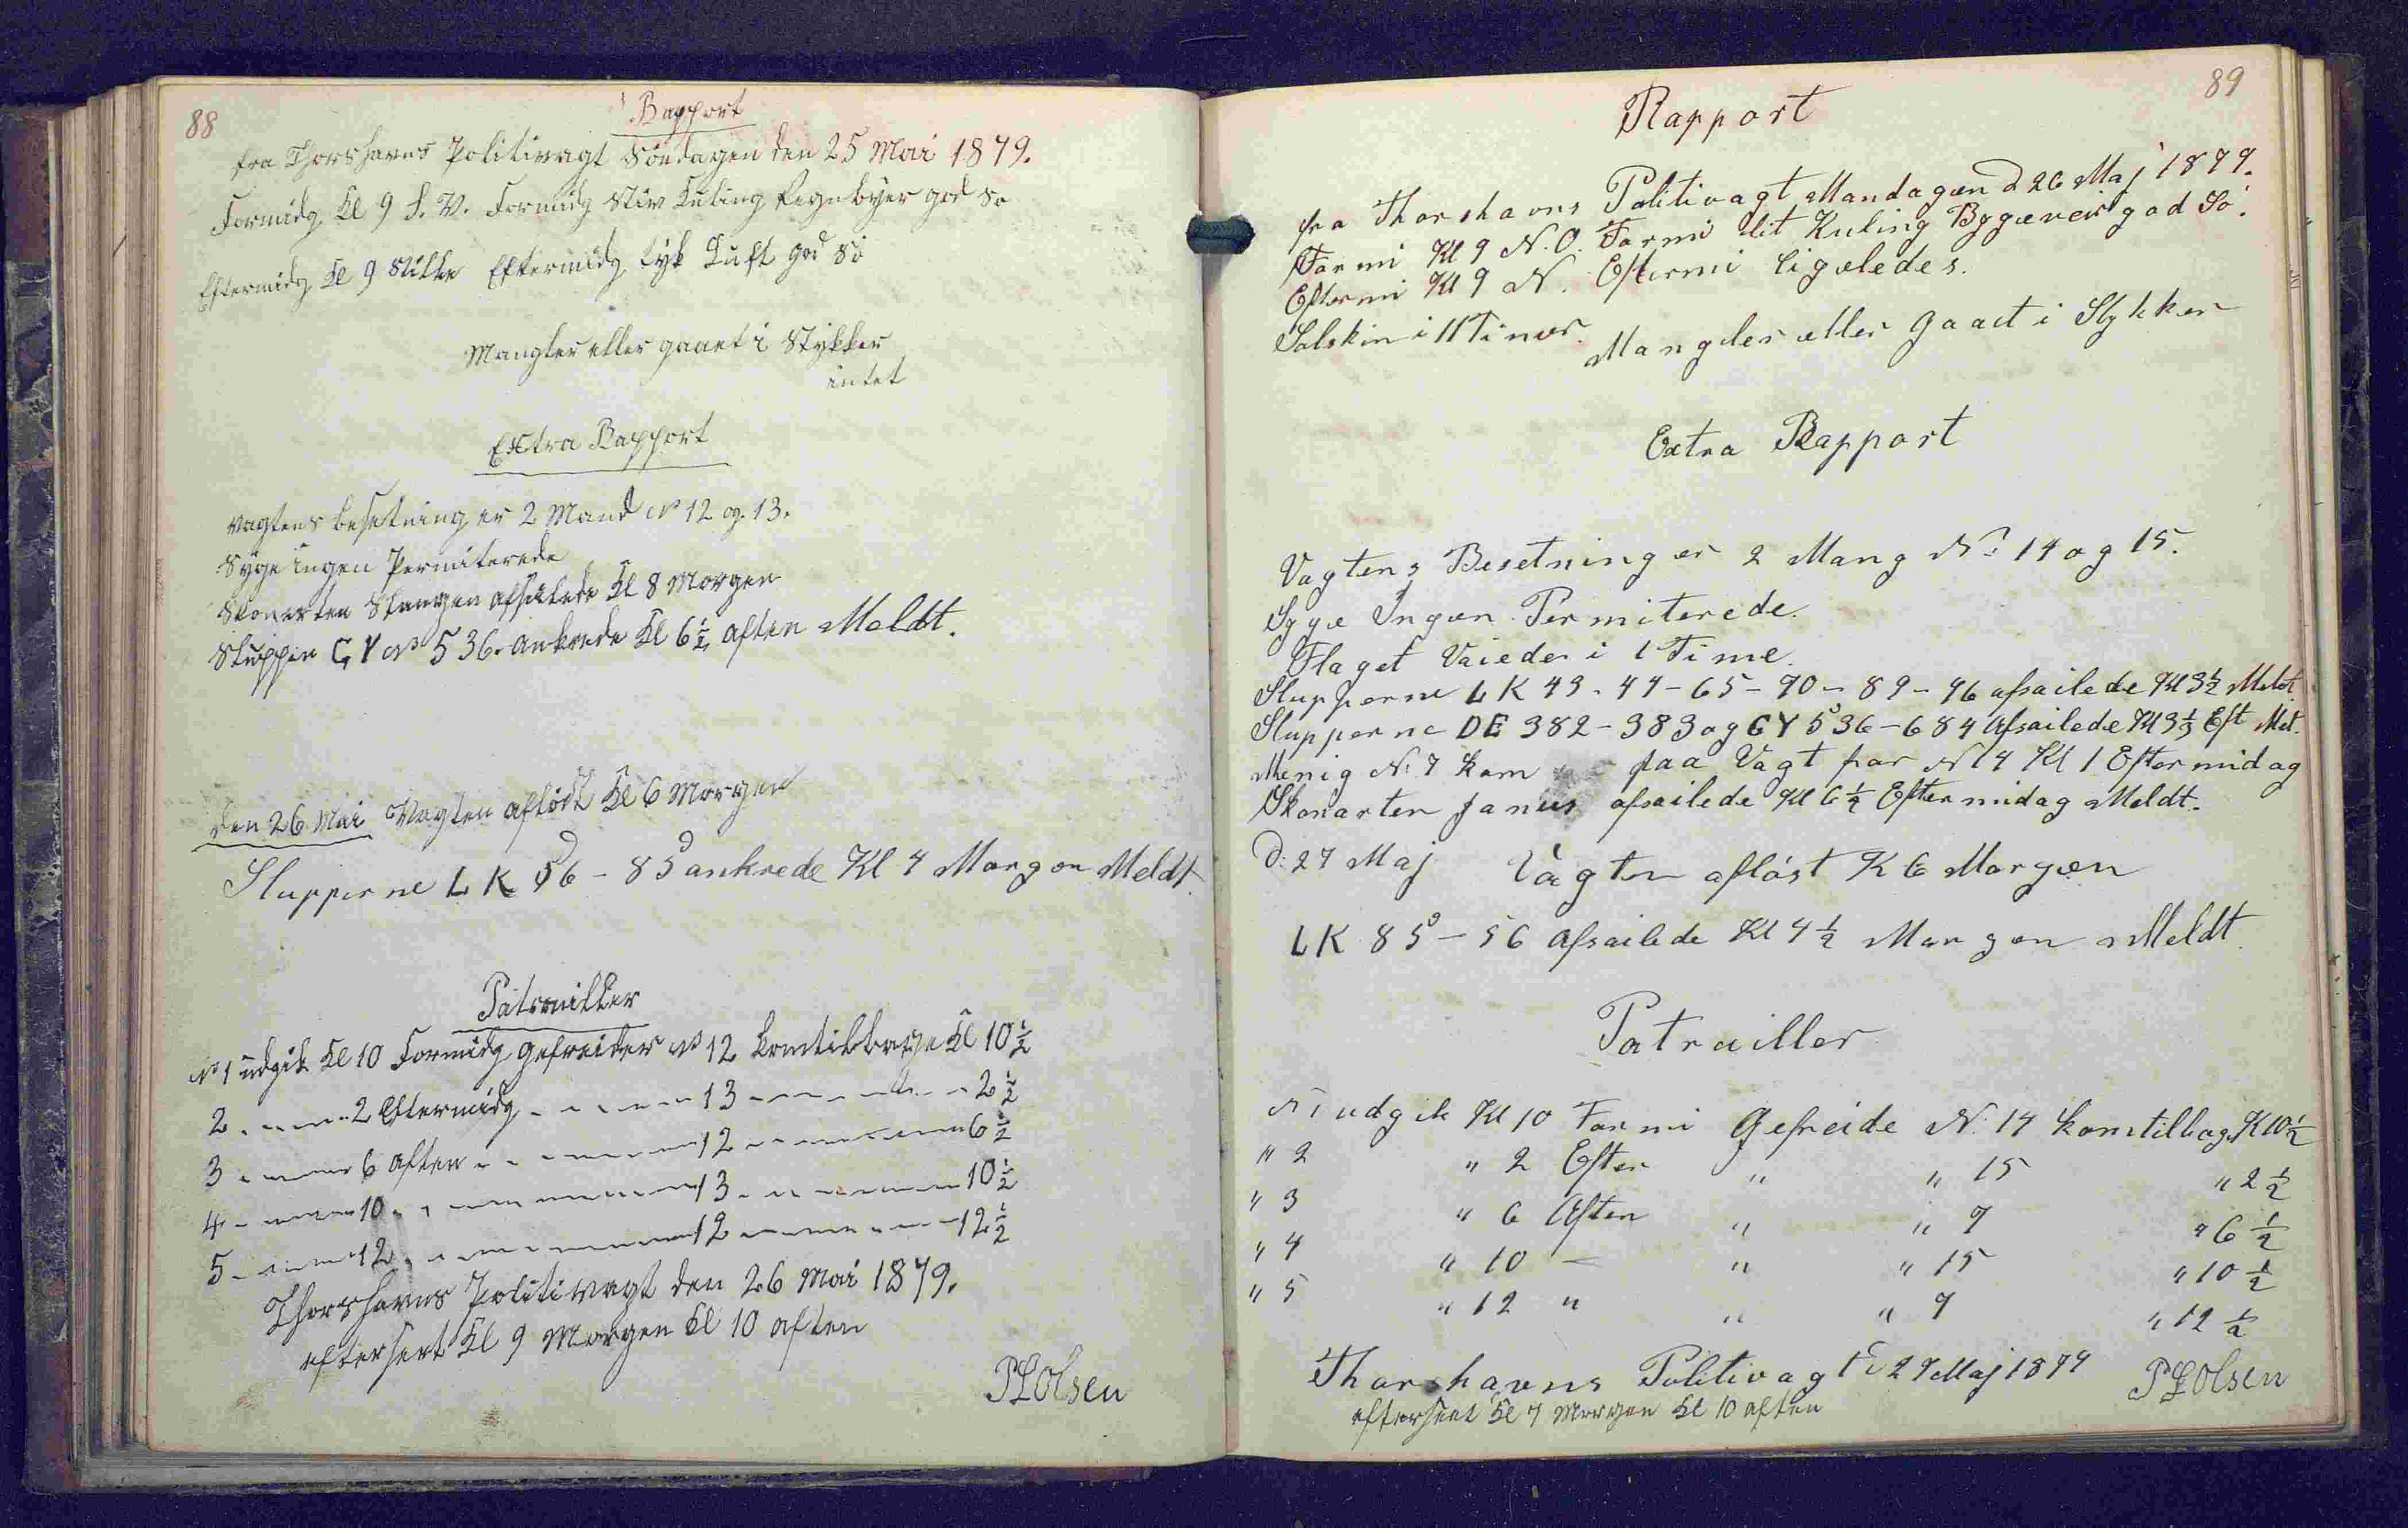 88
Rapport
fra Thorshavns Politivagt Söndagen den 25 Mai 1879.
Formidg Kl 9 S. V. Formidg Stiv Kuling Regnbyer god Sö
Eftermidg Kl 9 Stille Eftermidg tyk Luft god Sö
Mangler eller gaaet i Stykker
intet
Extra Rapport
Vagtens besetning er 2 Mand No 12 og 13.
Syge ingen Permiterede
Skonerten afseilede Kl 8 Morgen
Sluppen GY No 536. ankrede Kl 6½ Aften Meldt.
den 26 Mai Vagten aflöst Kl 6 Morgen
Slupperne LK 56 - 85 ankrede Kl 4 Morgen Meldt.
Patrouiller
No 1 udgik Kl 10 Formidg Gefreider No 12 kom tilbage Kl 10½
2 - - - 2 Eftermidg - - - 13 - - - 2½
3 - - - 6 Aften - - - 12 - - - 6½
4 - - - 10 - - - 13 - - - 10½
5 - - - 12 - - - 12 - - - 12½
Thorshavns Politivagt den 26 Mai 1879.
efterseet Kl 9 Morgen Kl 10 Aften
PLOlsen
89
Rapport
fra Thorshavns Politivagt Mandagen d 26 Maj 1879.
Formi Kl 9 N.O. Formi lit Kuling Bygever god Sö.
Eftermi Kl 9 N. Eftermi ligeledes.
Solskin i 11 Timer.
Mangler eller gaaet i Stykker
Extra Rapport
Vagtens Besetning er 2 Mang No: 14 og 15.
Syge Ingen Permiterede.
Flaget Vaiedes i 1 Time.
Slupperne LK 43 - 49 - 65 - 70 - 89 - 96 afsailede Kl 3½ Meldt
Slupperne DE 382 - 383 og GY 536 - 684 Afsailede Kl 3½ Eft Mel.
Menig No 7 kom paa Vagt for No 14 Kl 1 Eftermidag
Skonarten Janus afsailede Kl 6½ Eftermidag Meldt.
D: 27 Maj Vagten aflöst K 6 Morgen
LK 85 - 56 Afsailede Kl 4½ Morgen Meldt.
Patrailler
No 1 udgik Kl 10 Formi Gefreide No 14 kom tilbag K 10½
" 2 " 2 Efter " " 15 " 2½
" 3 " 6 Aften " " 7 " 6½
" 4 " 10 — " " 15 " 10½
" 5 " 12 " " " 7 " 12½
Thorshavns Politivagt d 27 Maj 1879
PLOlsen
efterseet Kl 7 Morgen Kl 10 Aften